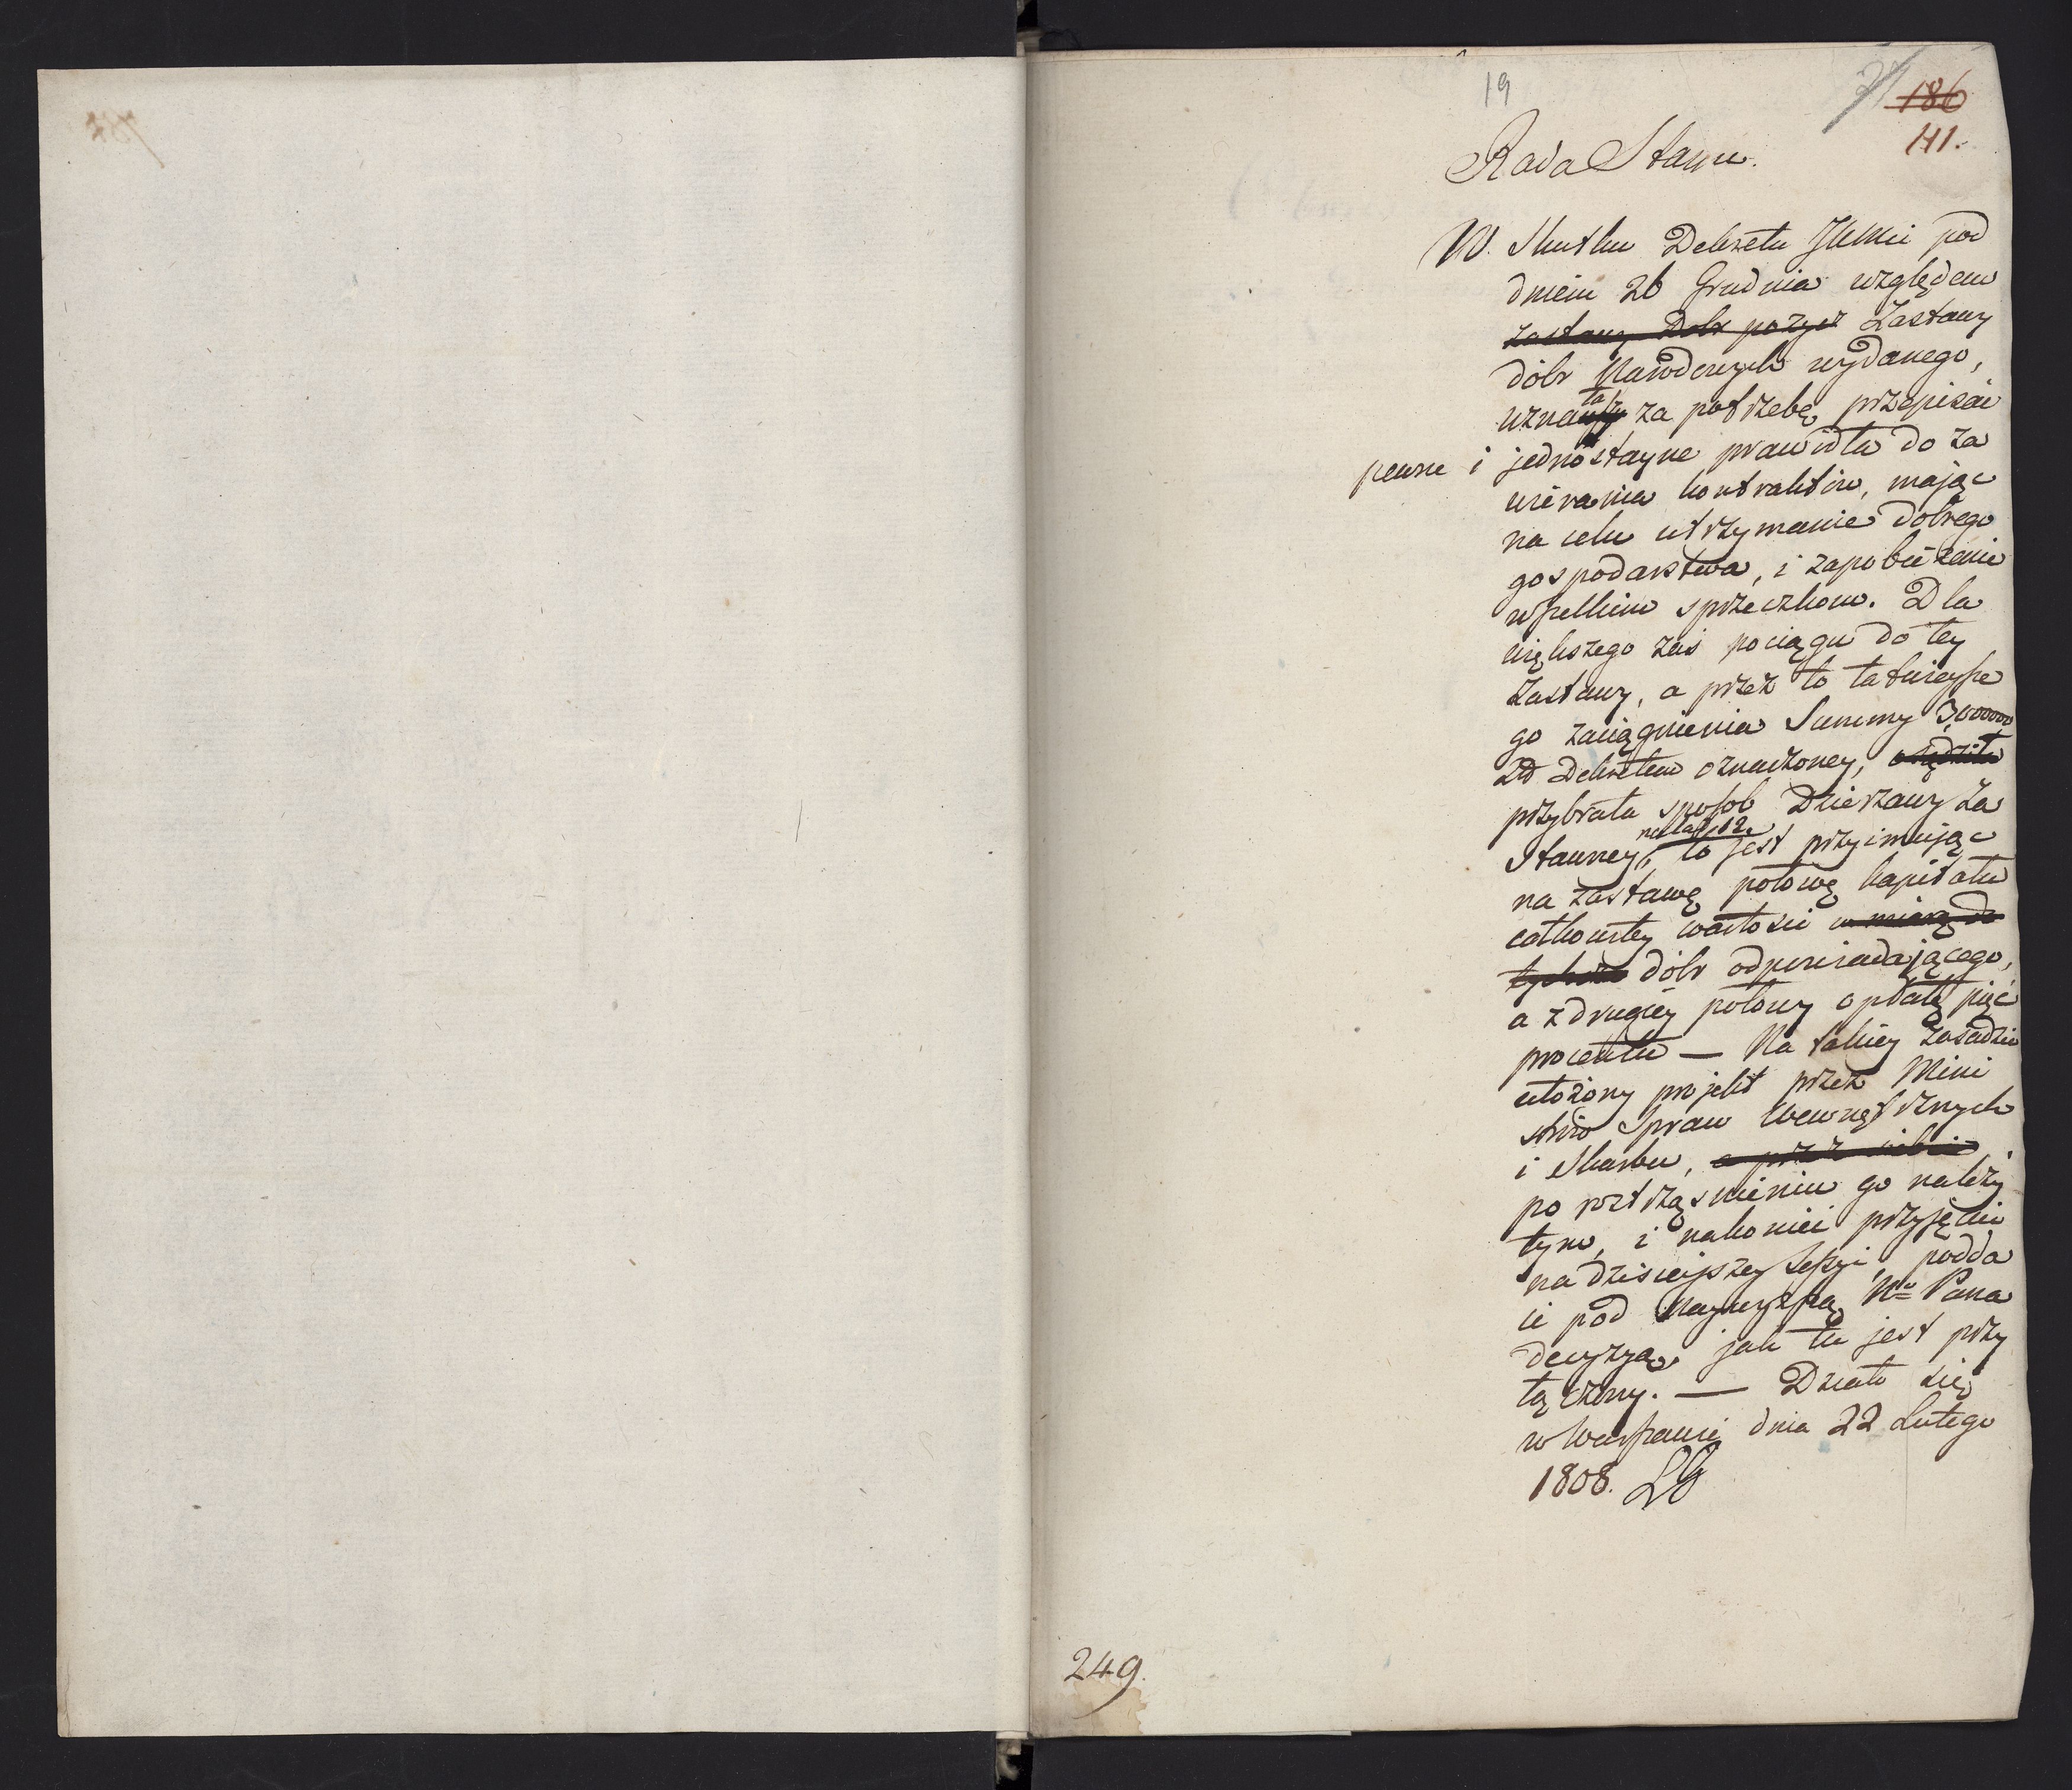 19
186
141.
Rada Stanu.
W. Skutku Dekretu JKMci pod
dniem 26 Grudnia względem
zastawy Dobr pożycz Zastawy
dóbr Narodowych wydanego,
uznawszy ta za potrzebę przepisać
pewne i jednostayne prawidła do za
wierania kontraktów, mając
na celu utrzymanie dobrego
gospodarstwa, i zapobieżenie
wszelkim sprzeczkom. Dla
większego zaś pociągu do tey
Zastawy, a przez to łatwieysze
go zaciągnienia Summy 3,000000
Zł Dekretem oznaczoney, osądziła
przybrała sposób Dzierzawy Za
Stawney, to jest przyimując
na zastawę połowę kapitału
całkowitey wartości w miarę do
tychże dóbr odpowiadającego,
a z drugiéy połowy opłatę pięć
procentu — Na takiéy zasadzie
ułożony projekt przez Mini
strów Spraw Wewnętrznych
i Skarbu, a przez siebie
po roztrząśnieniu go należy
tym, i nakoniec przyjęciu
na dzisieyszey Sessyi podda
ie pod Naywyższą Nº Pana
decyzyą, jak tu jest przy
łączony. — Działo się
w Warszawie dnia 22 Lutego
1808. LG
249.